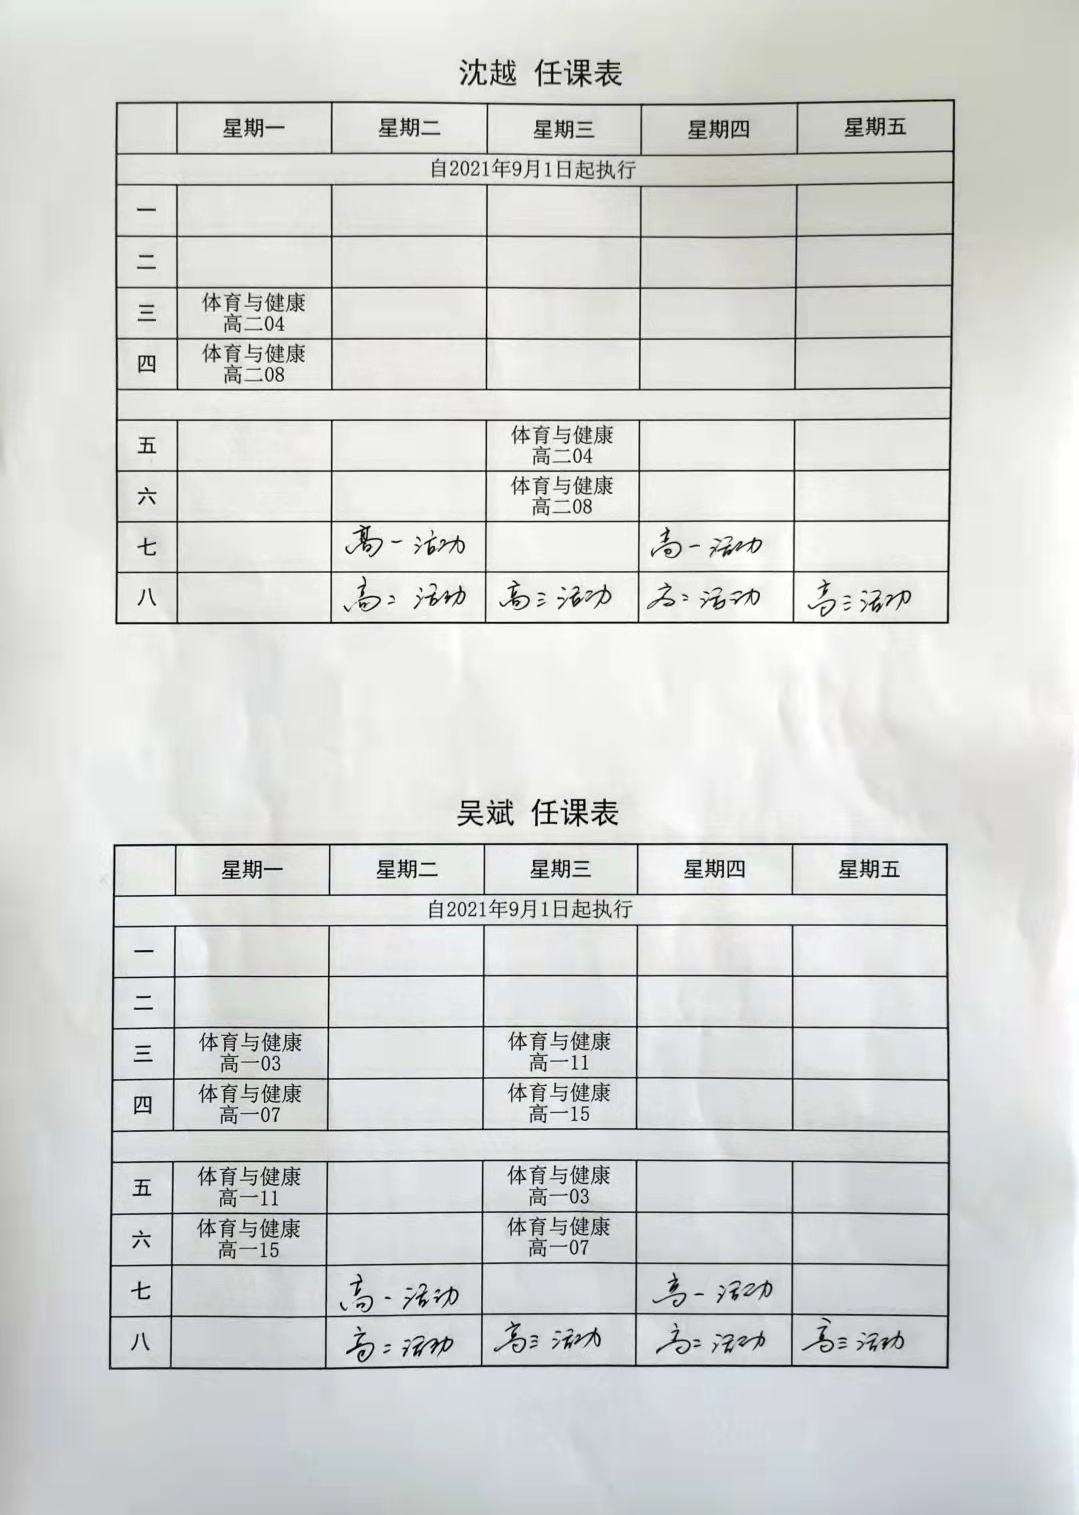 沈越 任课表
星期一 星期二 星期三 星期四 星期五
自2021年9月1日起执行
一
二
三 体育与健康
高二04
四 体育与健康
高二08
五 体育与健康
高二04
六 体育与健康
高二08
七 高一活动 高一活动
八 高二活动 高三活动 高二活动 高三活动
吴斌 任课表
星期一 星期二 星期三 星期四 星期五
自2021年9月1日起执行
一
二
三 体育与健康 体育与健康
高一03 高一11
四 体育与健康 体育与健康
高一07 高一15
五 体育与健康 体育与健康
高一11 高一03
六 体育与健康 体育与健康
高一15 高一07
七 高一活动 高一活动
八 高二活动 高三活动 高二活动 高三活动